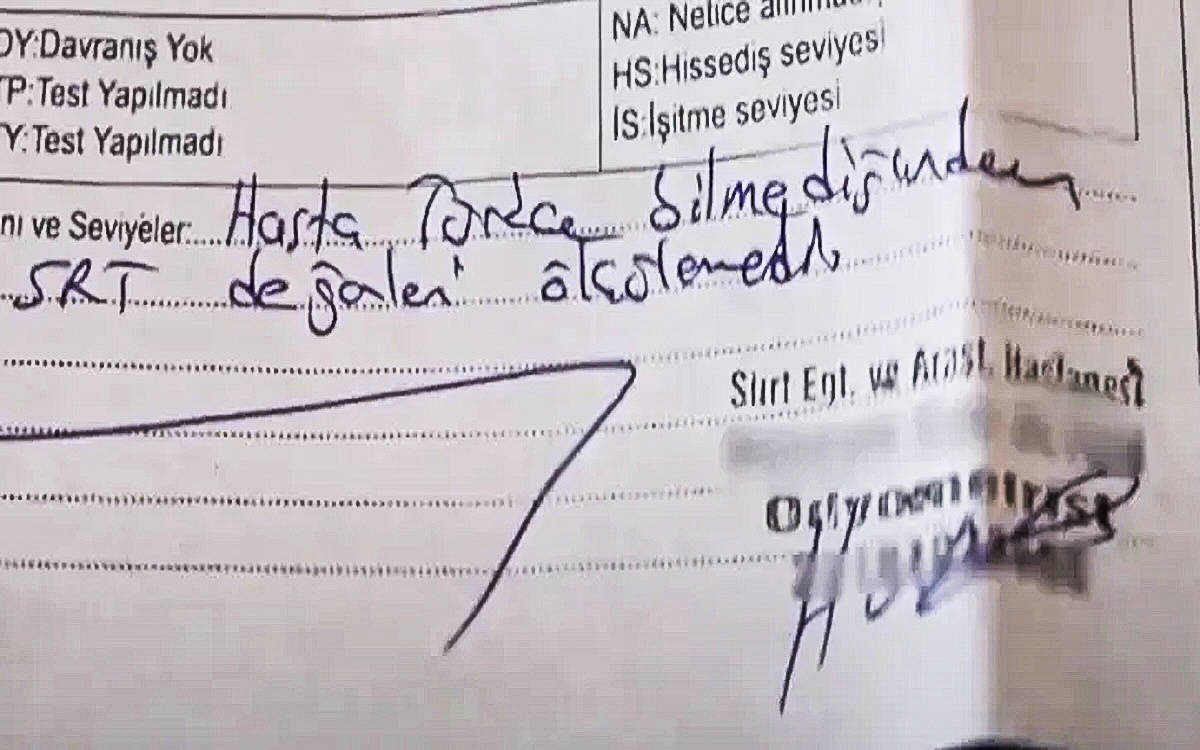 DY:Davranış Yok
TP:Test Yapılmadı
Y:Test Yapılmadı
NA: Netice
HS:Hissediş seviyesi
İS:İşitme seviyesi
nı ve Seviyeler: Hasta Türkçe bilmediğinden
SRT değerleri ölçülemedi
Siirt Eğt. ve Araşt. Hastanesi